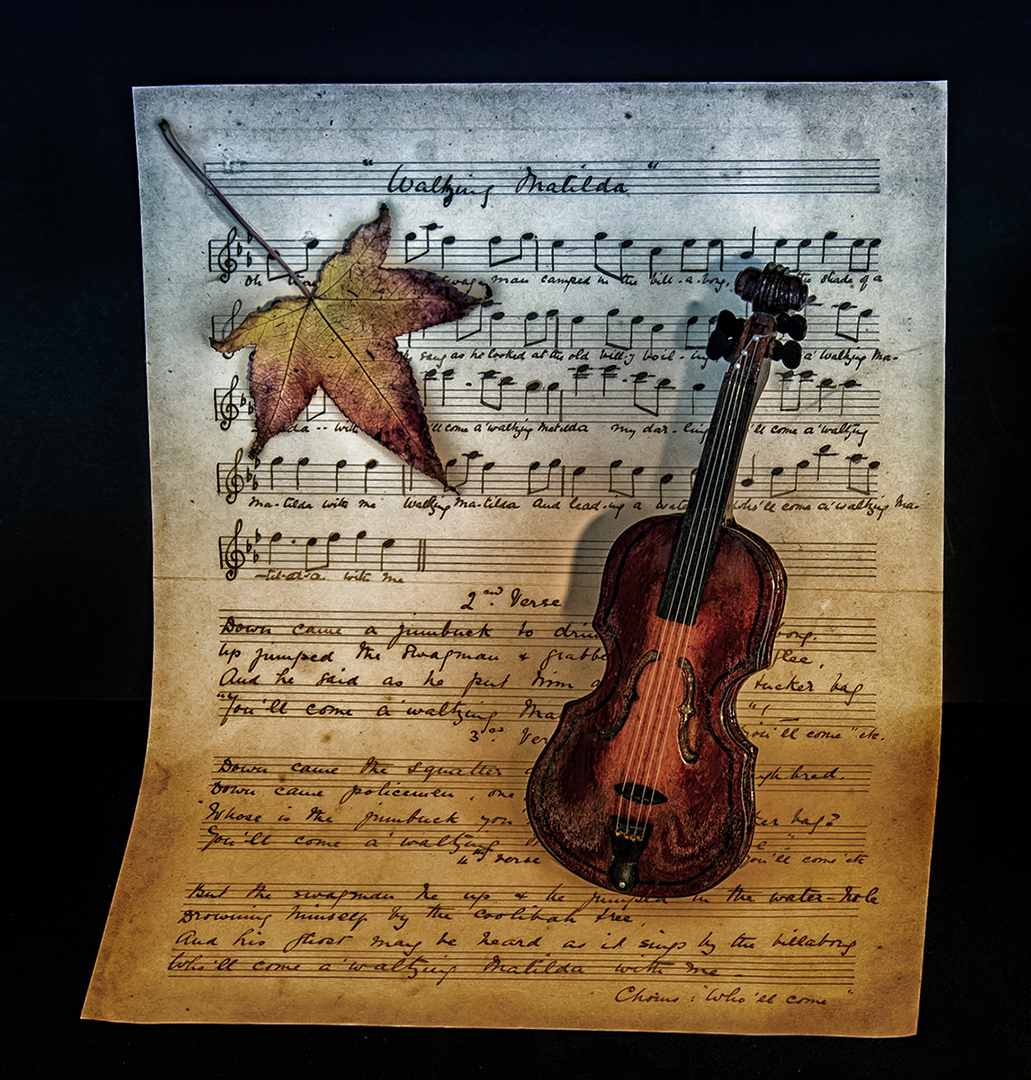 "Waltzing Matilda"
Oh swagman camped in the bill-a-bong, the shade of a
sang as he looked at the old billy boil-ing a'waltzing Ma-
da -- with 'll come a'waltzing Matilda my dar-ling 'll come a'waltzing
Ma-tilda with me Waltzing Ma-tilda and lead-ing a water who'll come a'waltzing Ma-
-til-da-a with me
2nd Verse
Down came a jumbuck to drin bong.
Up jumped the swagman & grabbe lee,
And he said as he put him a tucker bag
"You'll come a'waltzing Ma "
3rd Ver you'll come" etc.
Down came the squatter gh bred.
Down came policemen, one
Whose is the jumbuck you' ker bag?
You'll come a'waltzing
4th verse you'll come etc
But the swagman he up & he jumped in the water-hole
Drowning himself by the coolibah tree,
And his ghost may be heard as it sings by the billabong
Who'll come a'waltzing Matilda with me -
Chorus: "Who'll come"